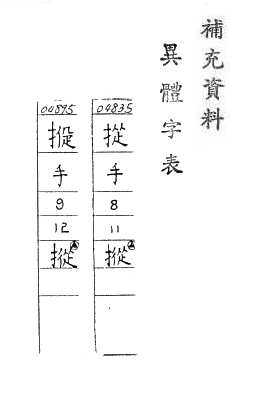 補充資料
異體字表
04835
手
8
11
摐
04895
手
9
12
摐